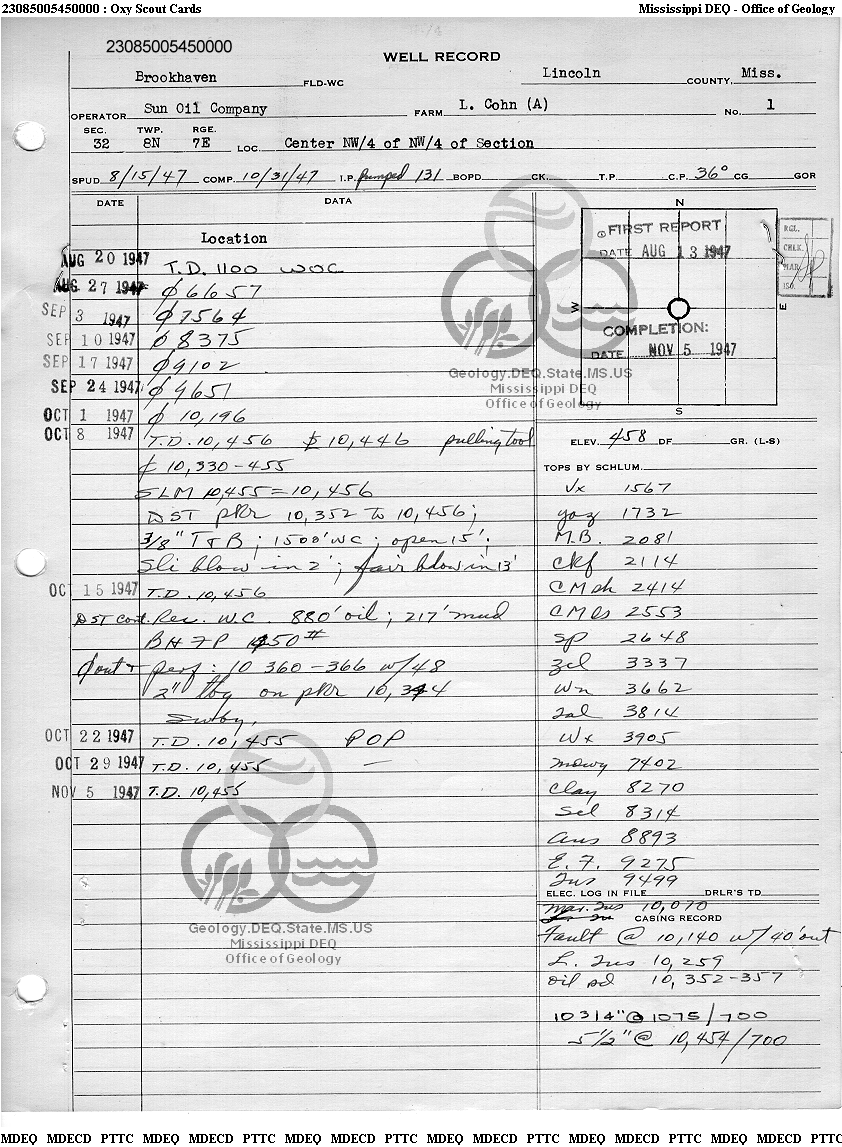 23085005450000 : Oxy Scout Cards
Mississippi DEQ - Office of Geology
23085005450000
WELL RECORD
Brookhaven FLD-WC Lincoln COUNTY, Miss.
OPERATOR Sun Oil Company FARM L. Cohn (A) No. 1
SEC. TWP. RGE.
32 8N 7E LOC. Center NW/4 of NW/4 of Section
SPUD 8/15/47 COMP. 10/31/47 I.P. Pumped 131 BOPD CK. T.P. C.P. 36° CG GOR
DATE DATA
Location
AUG 20 1947 T.D. 1100 WOC
AUG 27 1947 Ø 6657
SEP 3 1947 Ø 7564
SEP 10 1947 Ø 8375
SEP 17 1947 Ø 9102
SEP 24 1947 Ø 9651
OCT 1 1947 Ø 10,196
OCT 8 1947 T.D. 10,456 10,446 pulling tool
₵ 10,330-455
SLM 10,455 = 10,456
DST pkr 10,352 to 10,456;
3/8" T & B; 1500' WC; open 15';
Sli blow in 2'; fair blow in 13'
OCT 15 1947 T.D. 10,456
DST cont. Rec. W.C. 880' oil; 217' mud
BHFP 50#
perf: 10 360-366 w/48
2" tbg on pkr 10,344
OCT 22 1947 T.D. 10,455 POP
OCT 29 1947 T.D. 10,455 —
NOV 5 1947 T.D. 10,455
N
W
E
S
FIRST REPORT
DATE AUG 13 1947
COMPLETION:
DATE NOV 5 1947
RGL.
CHLK.
MAR.
ISO.
Geology.DEQ.State.MS.US
Mississippi DEQ
Office of Geology
ELEV. 458 DF GR. (L-S)
TOPS BY SCHLUM.
Vx 1567
yaz 1732
M.B. 2081
ckf 2114
CM sh 2414
CM ls 2553
Sp 2648
Zil 3337
Wn 3662
Sal 3814
Wx 3905
mowy 7402
Clay 8270
Sel 8314
Aus 8893
E. F. 9275
Tus 9499
ELEC. LOG IN FILE DRLR'S TD
Mar. Tus 10,070
CASING RECORD
Fault @ 10,140 w/40' out
L. Tus 10,259
oil sd 10,352-357
10 3/4" @ 1075/700
5 1/2" @ 10,454/700
Geology.DEQ.State.MS.US
Mississippi DEQ
Office of Geology
MDEQ MDECD PTTC MDEQ MDECD PTTC MDEQ MDECD PTTC MDEQ MDECD PTTC MDEQ MDECD PTTC MDEQ MDECD PTTC